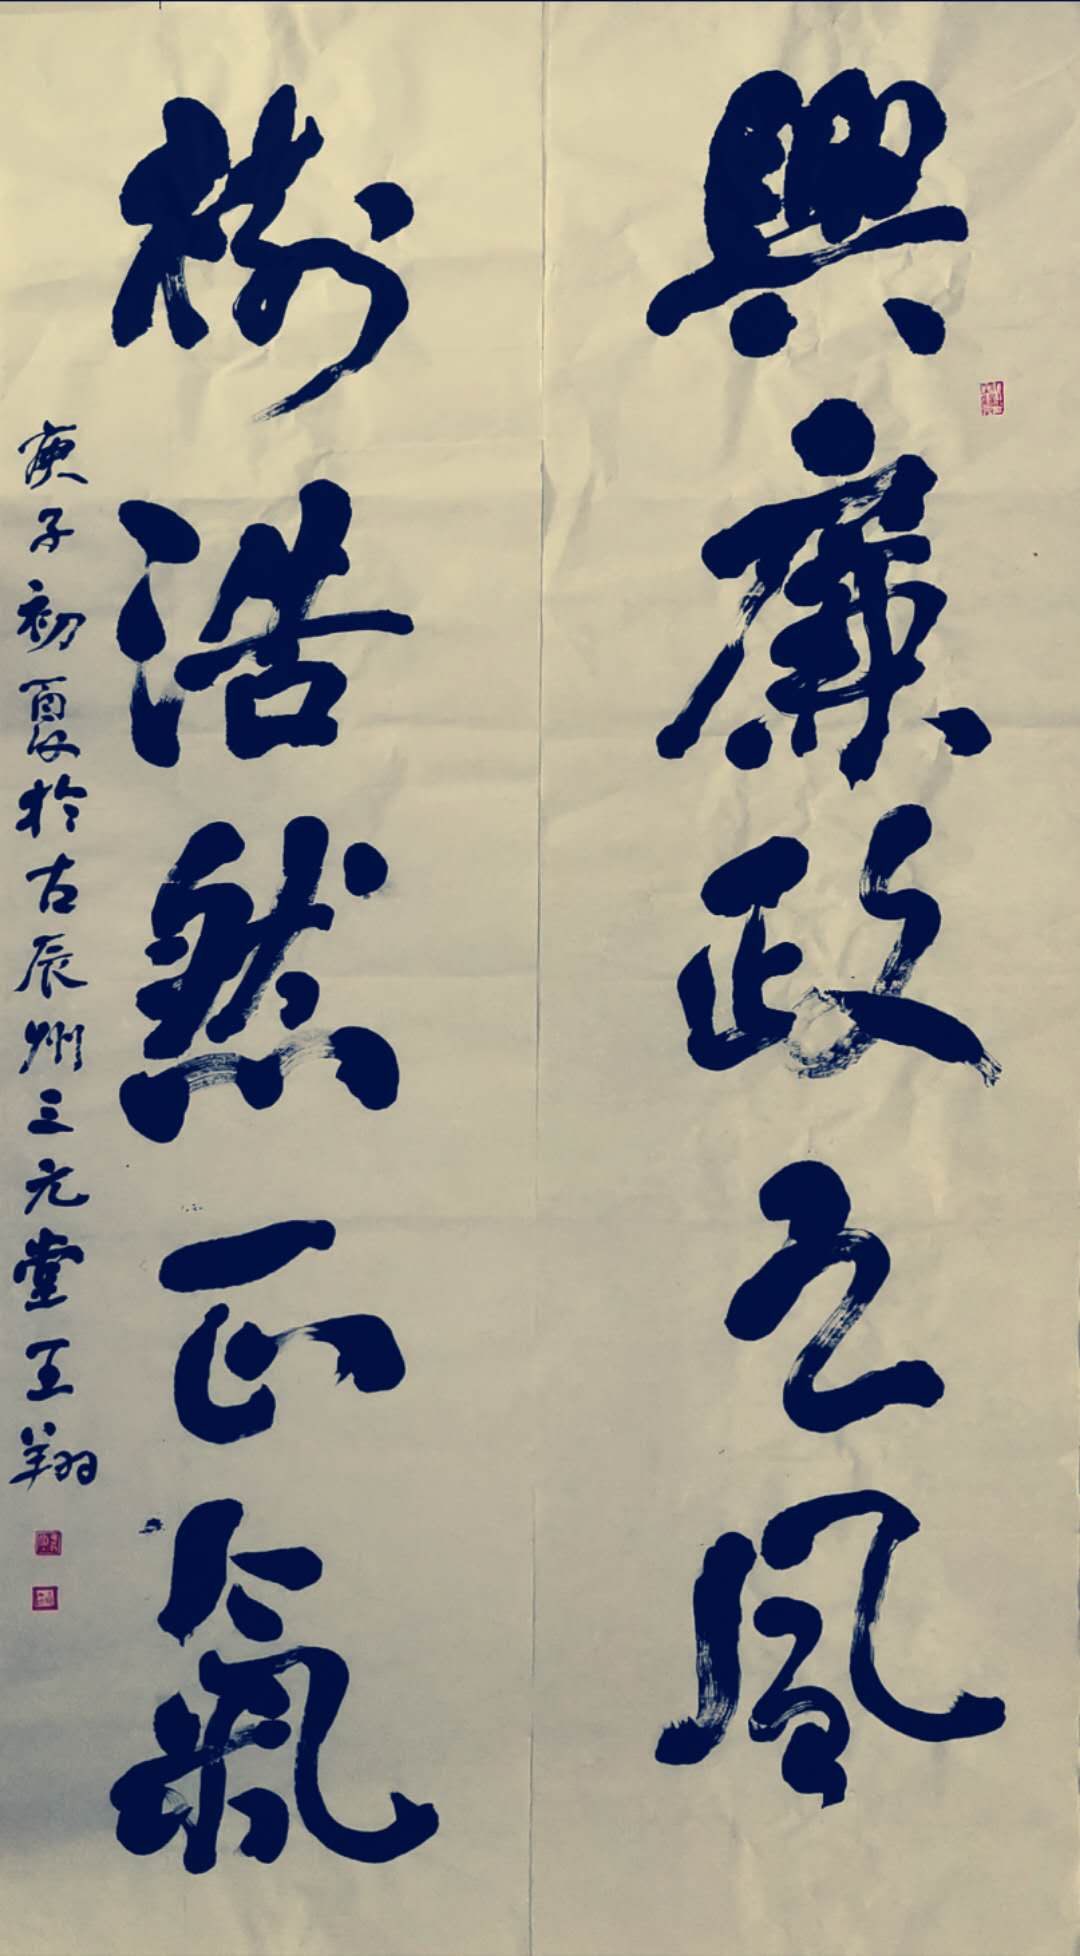 興廉政之風
樹浩然正氣
庚子初夏於古辰州三元堂王翔